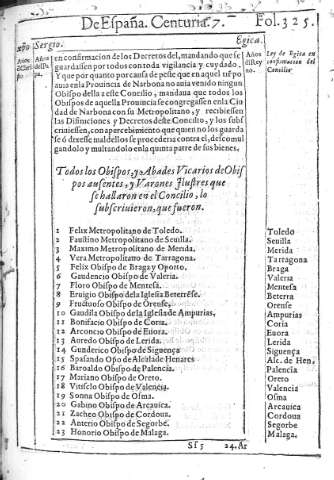 De España. Centuria. 7. Fol. 325.
Sergio. Egica.
en confirmacion de los Decretos del, mandando que se
guardassen por todos con toda vigilancia y cuydado.
Y que por quanto por causa de peste que en aquel tiẽpo
auia en la Prouincia de Narbona no auia venido ningun
Obispo della a este Concilio, mandaua que todos los
Obispos de aquella Prouincia se congregassen en la Ciu
dad de Narbona con su Metropolitano, y recibiessen
las Difiniciones y Decretos deste Concilio, y los subs
criuiessen, con apercebimiento que quien no los guarda
se ó desechasse dellos se procederia contra el, descomul
gandolo y multandolo en la quinta parte de sus bienes.
Ley de Egica en
confirmacion del
Concilio
Todos los Obispos, y Abades Vicarios de Obis
pos ausentes, y Varones Ilustres que
se hallaron en el Concilio, lo
subscriuieron, que fueron.
1 Felix Metropolitano de Toledo. Toledo
2 Faustino Metropolitano de Seuilla. Seuilla
3 Maximo Metropolitano de Merida. Merida
4 Vera Metropolitano de Tarragona. Tarragona
5 Felix Obispo de Braga y Oporto. Braga
6 Gaudencio Obispo de Valeria. Valeria
7 Floro Obispo de Mentesa. Mentesa
8 Eruigio Obispo de la Iglesia Beterrẽse. Beterra
9 Fructuoso Obispo de Orense. Orense
10 Gaudila Obispo de la Iglesia de Ampurias, Ampurias
11 Bonifacio Obispo de Coria. Coria
12 Arconcio Obispo de Eiiora. Euora
13 Auredo Obispo de Lerida. Lerida
14 Gunderico Obispo de Siguença Siguença
15 Spasando Obispo de Alcala de Henares Alc. de Hen.
16 Baroaldo Obispo de Palencia. Palencia
17 Mariano Obispo de Oreto. Oreto
18 Vitisclo Obispo de Valencia. Valencia
19 Sonna Obispo de Osma. Osma
20 Gabino Obispo de Arcauica. Arcauica
21 Zacheo Obispo de Cordoua. Cordoua
22 Anterio Obispo de Segorbe. Segorbe
23 Honorio Obispo de Malaga. Malaga.
Sf 3 24. Ar